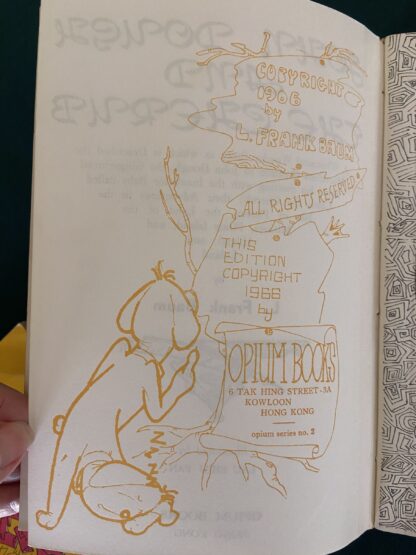 COPYRIGHT
1906
by
L. FRANK BAUM
ALL RIGHTS RESERVED
THIS
EDITION
COPYRIGHT
1966
by
OPIUM BOOKS
6 TAK HING STREET-3A
KOWLOON
HONG KONG
opium series no. 2